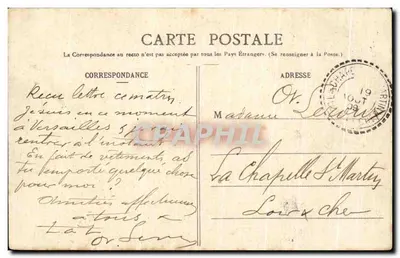 CARTE POSTALE
La Correspondance au recto n'est pas acceptée par tous les Pays Étrangers. (Se renseigner à la Poste.)
CORRESPONDANCE
ADRESSE
Reçu lettre ce matin
Je suis en ce moment
à Versailles
rentrer à l'instant
En fait de vêtements, as
tu emporté quelque chose
pour moi ?
Amitiés affectueuses
à tous
Madame Leroux
La Chapelle St Martin
Loir & Cher
19
OCT
09
KPAPHIL